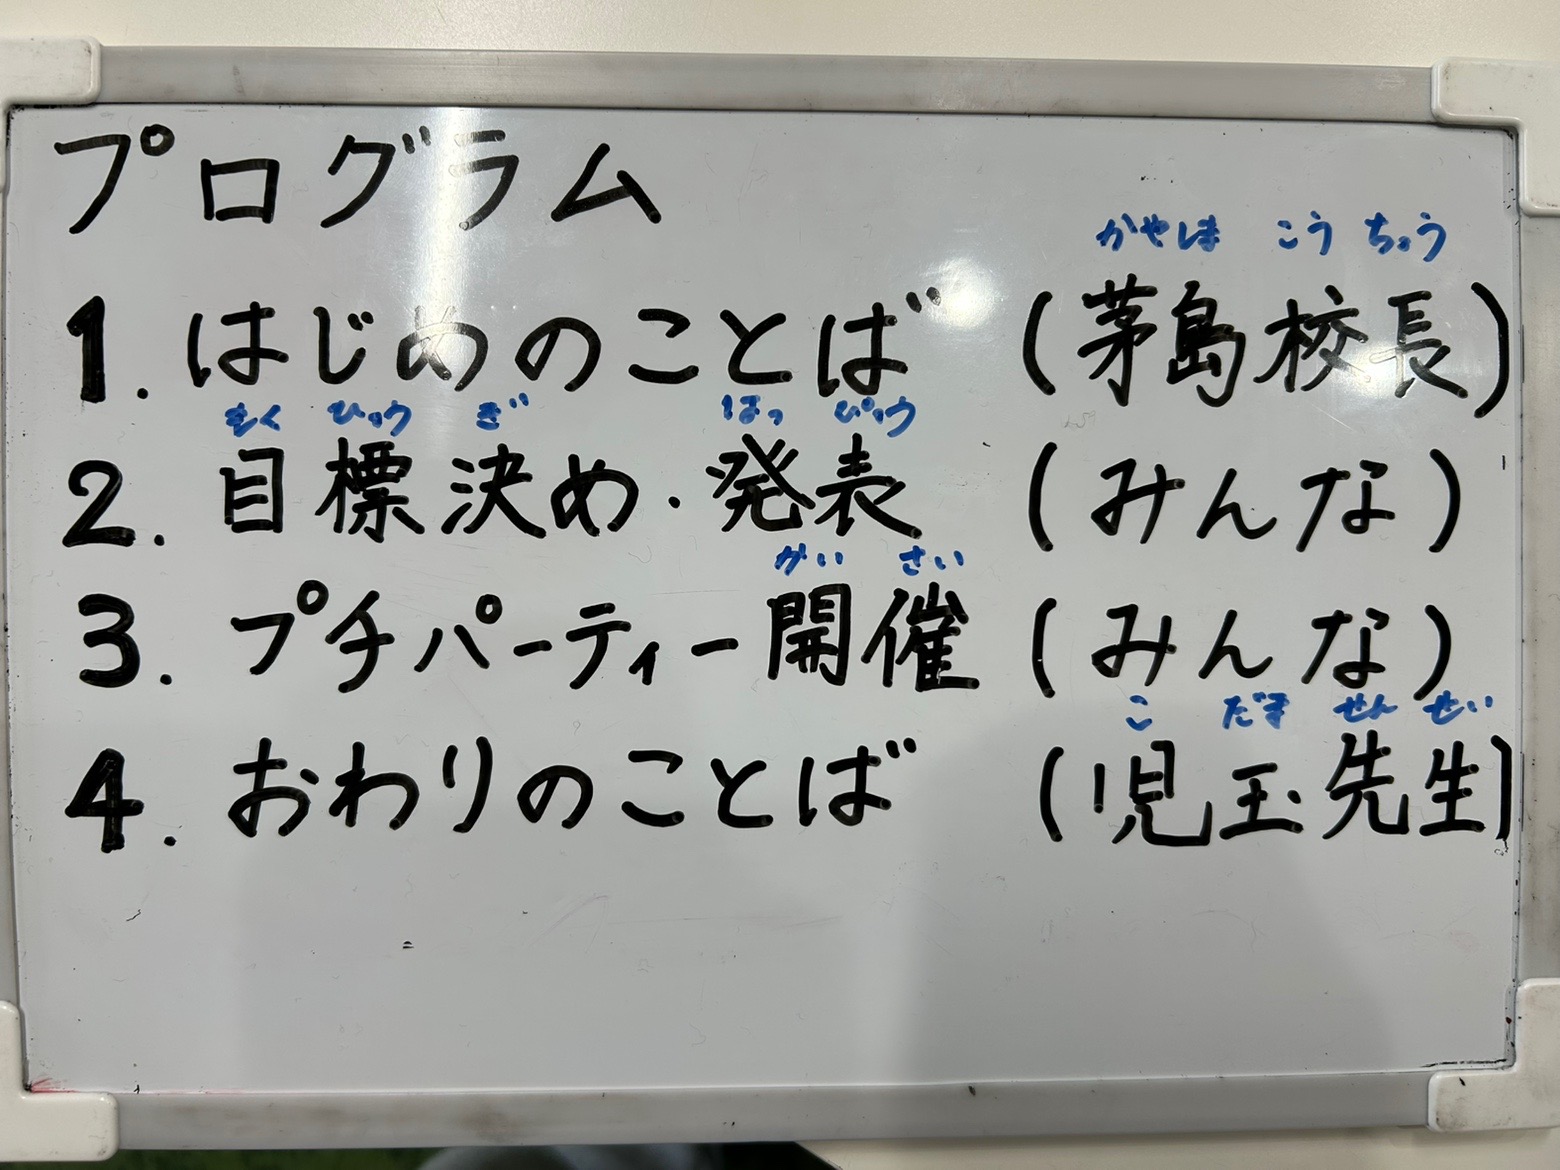 プログラム
かやしま こうちょう
1. はじめのことば (茅島校長)
もく ひょう ぎ はっ ぴょう
2. 目標決め・発表 (みんな)
かい さい
3. プチパーティー開催 (みんな)
こ だま せん せい
4. おわりのことば (児玉先生)